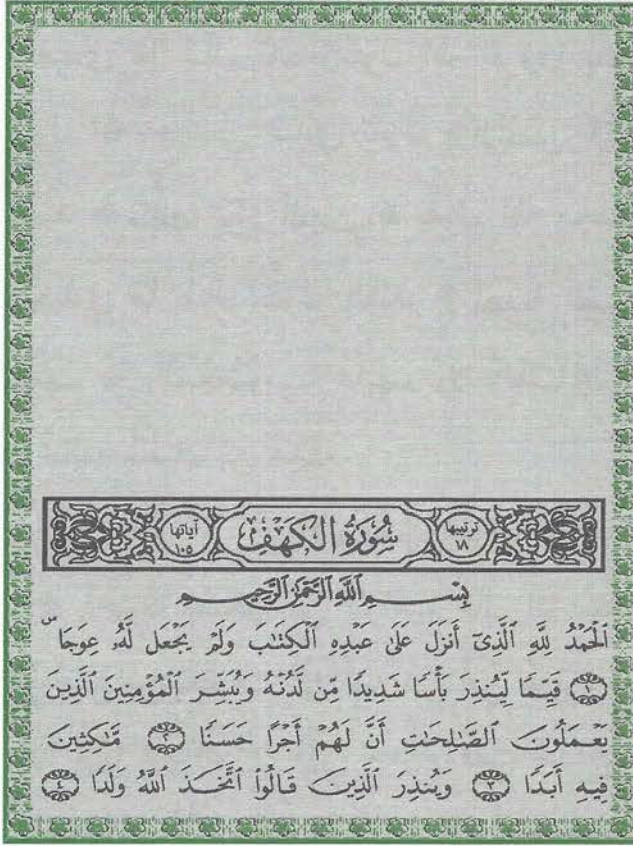 ترتيبها ١٨ سُورَةُ الكَهْفِ آياتها ١٠٥
بِسْمِ ٱللَّهِ ٱلرَّحْمَٰنِ ٱلرَّحِيمِ
ٱلْحَمْدُ لِلَّهِ ٱلَّذِىٓ أَنزَلَ عَلَىٰ عَبْدِهِ ٱلْكِتَٰبَ وَلَمْ يَجْعَل لَّهُۥ عِوَجَاۜ
١ قَيِّمًا لِّيُنذِرَ بَأْسًا شَدِيدًا مِّن لَّدُنْهُ وَيُبَشِّرَ ٱلْمُؤْمِنِينَ ٱلَّذِينَ
يَعْمَلُونَ ٱلصَّٰلِحَٰتِ أَنَّ لَهُمْ أَجْرًا حَسَنًا ٢ مَّٰكِثِينَ
فِيهِ أَبَدًا ٣ وَيُنذِرَ ٱلَّذِينَ قَالُوا۟ ٱتَّخَذَ ٱللَّهُ وَلَدًا ٤